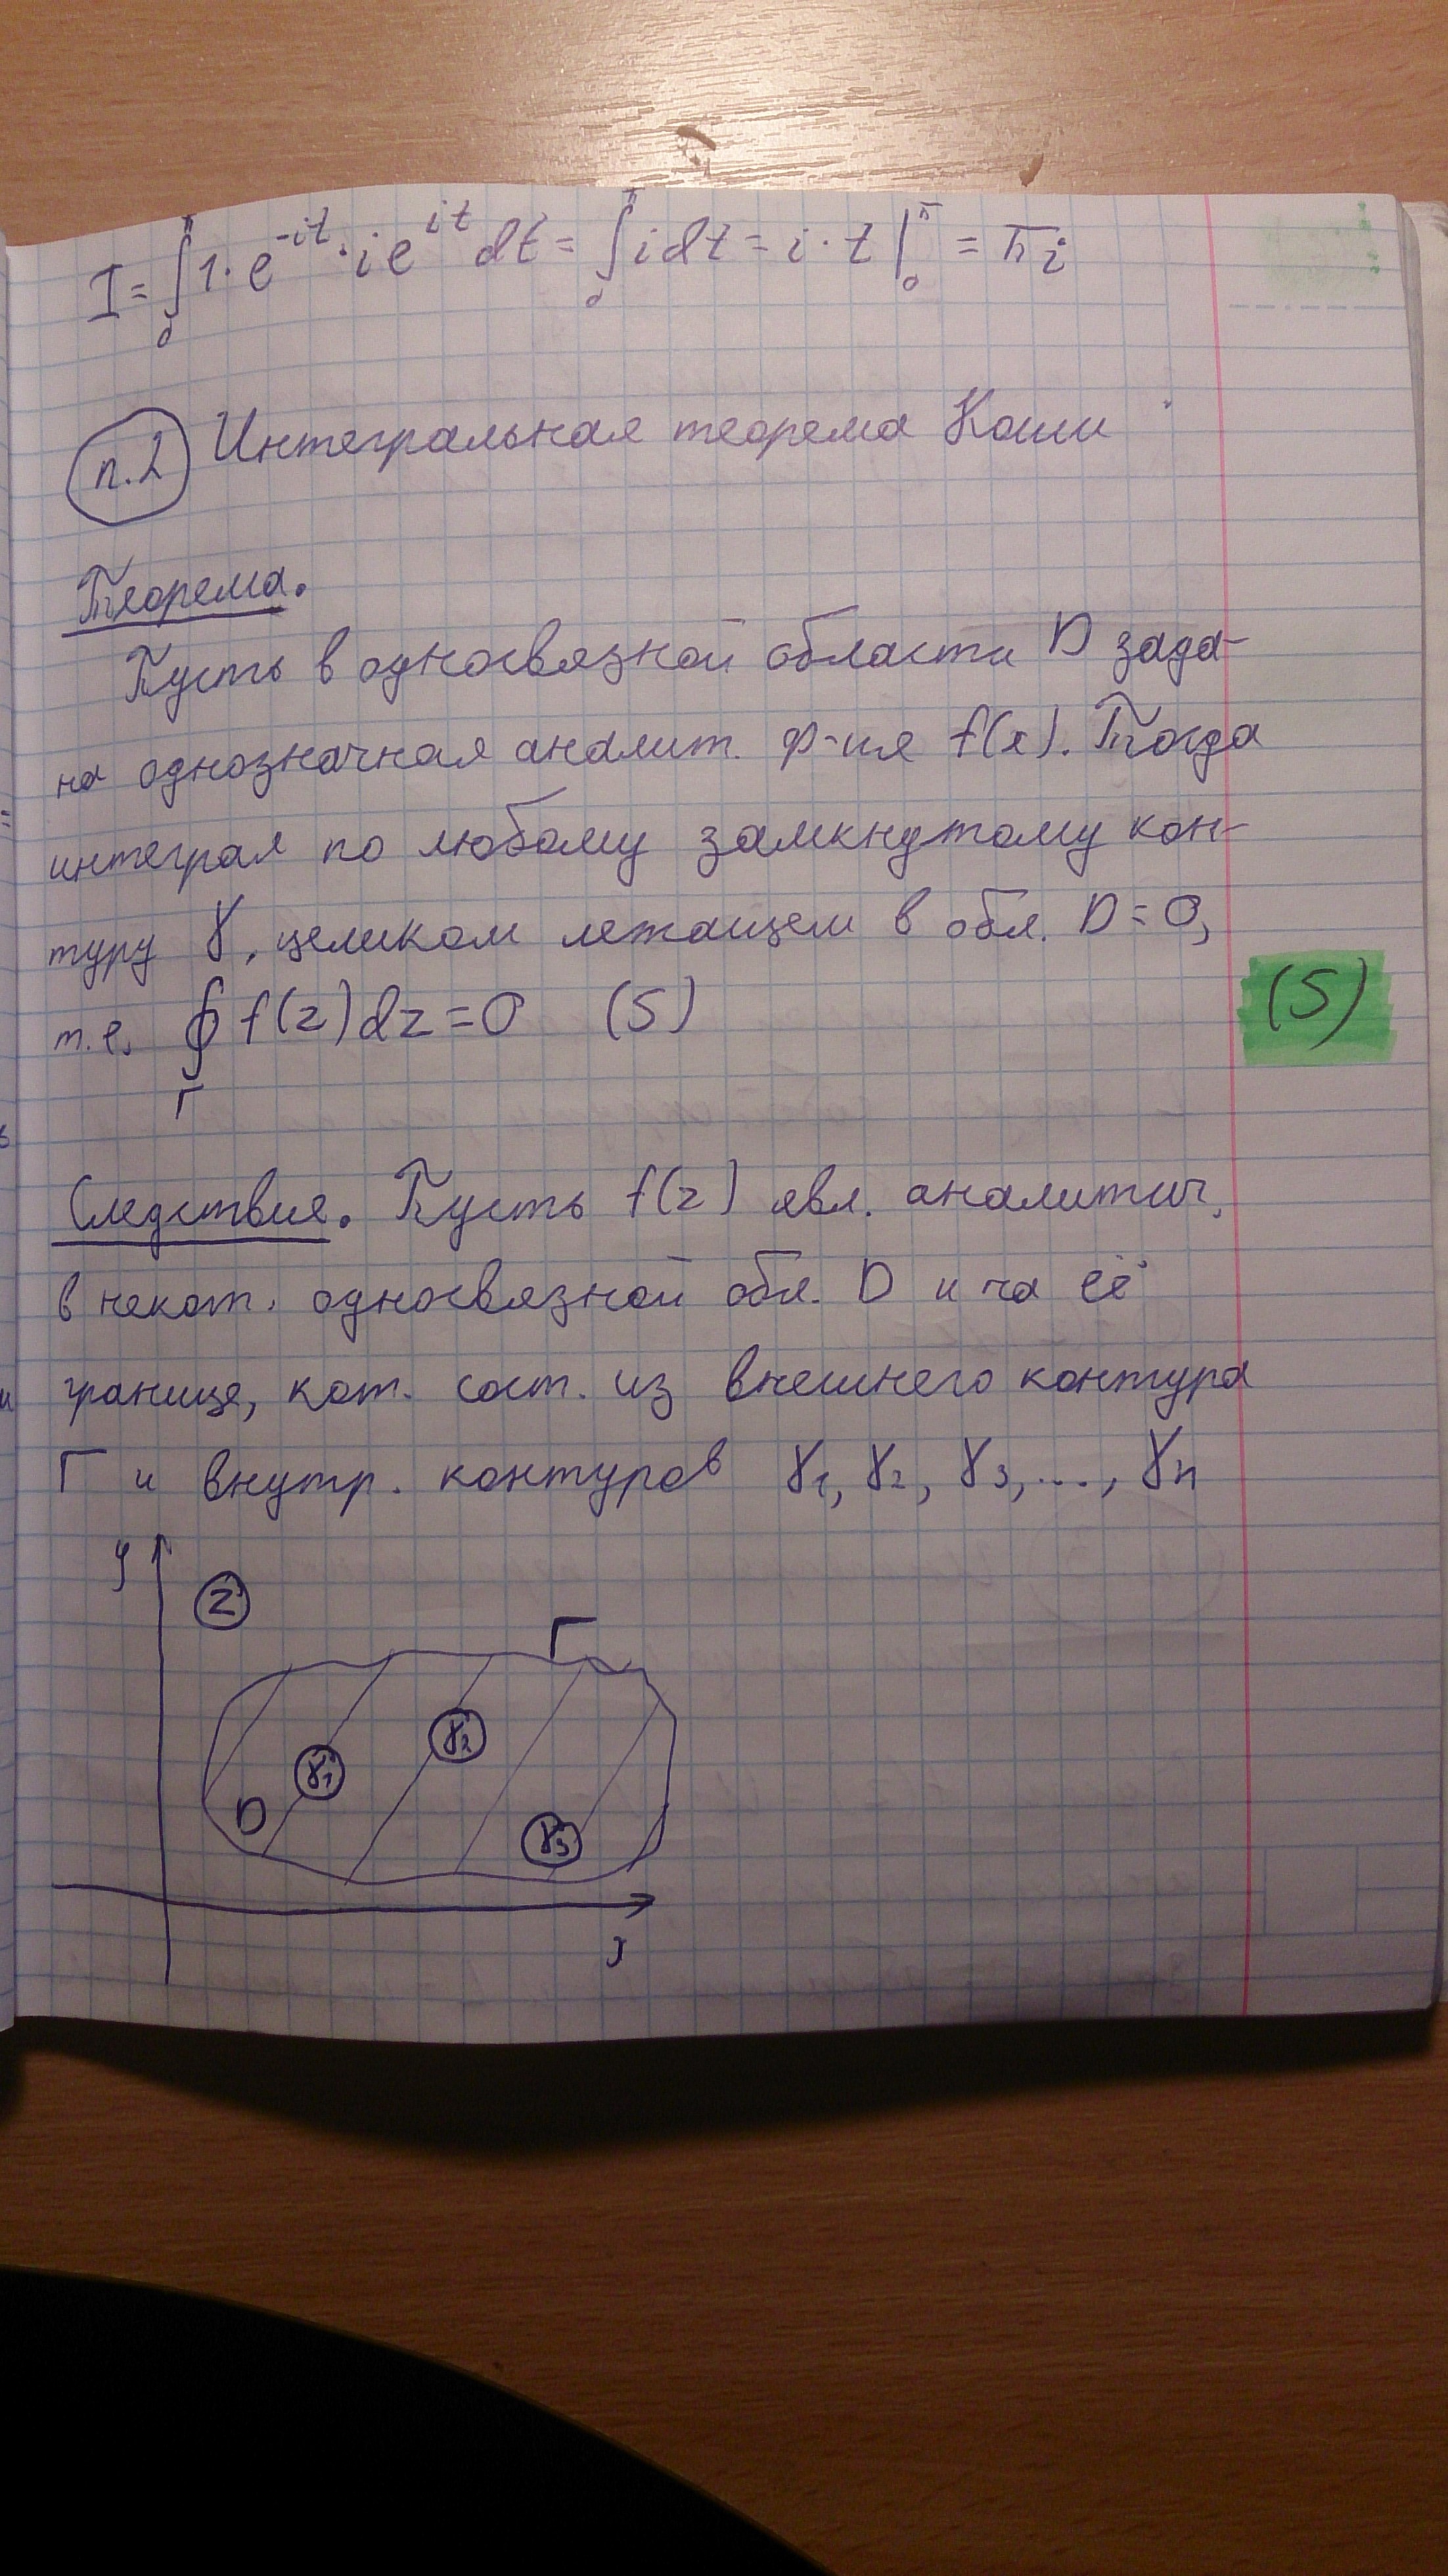 I = ∫₀^π 1·e^{-it}·ie^{it} dt = ∫₀^π i dt = i·t |₀^π = πi
п.2 Интегральная теорема Коши
Теорема.
Пусть в односвязной области D зада-
на однозначная аналит. ф-ия f(x). Тогда
интеграл по любому замкнутому кон-
туру γ, целиком лежащем в обл. D = 0,
т.е. ∮_Γ f(z)dz = 0 (5)
(5)
Следствие. Пусть f(z) явл. аналитич.
в некот. односвязной обл. D и на её
границе, кот. сост. из внешнего контура
Γ и внутр. контуров γ₁, γ₂, γ₃, ..., γn
y
z
Γ
γ₂
γ₁
D
γ₃
x